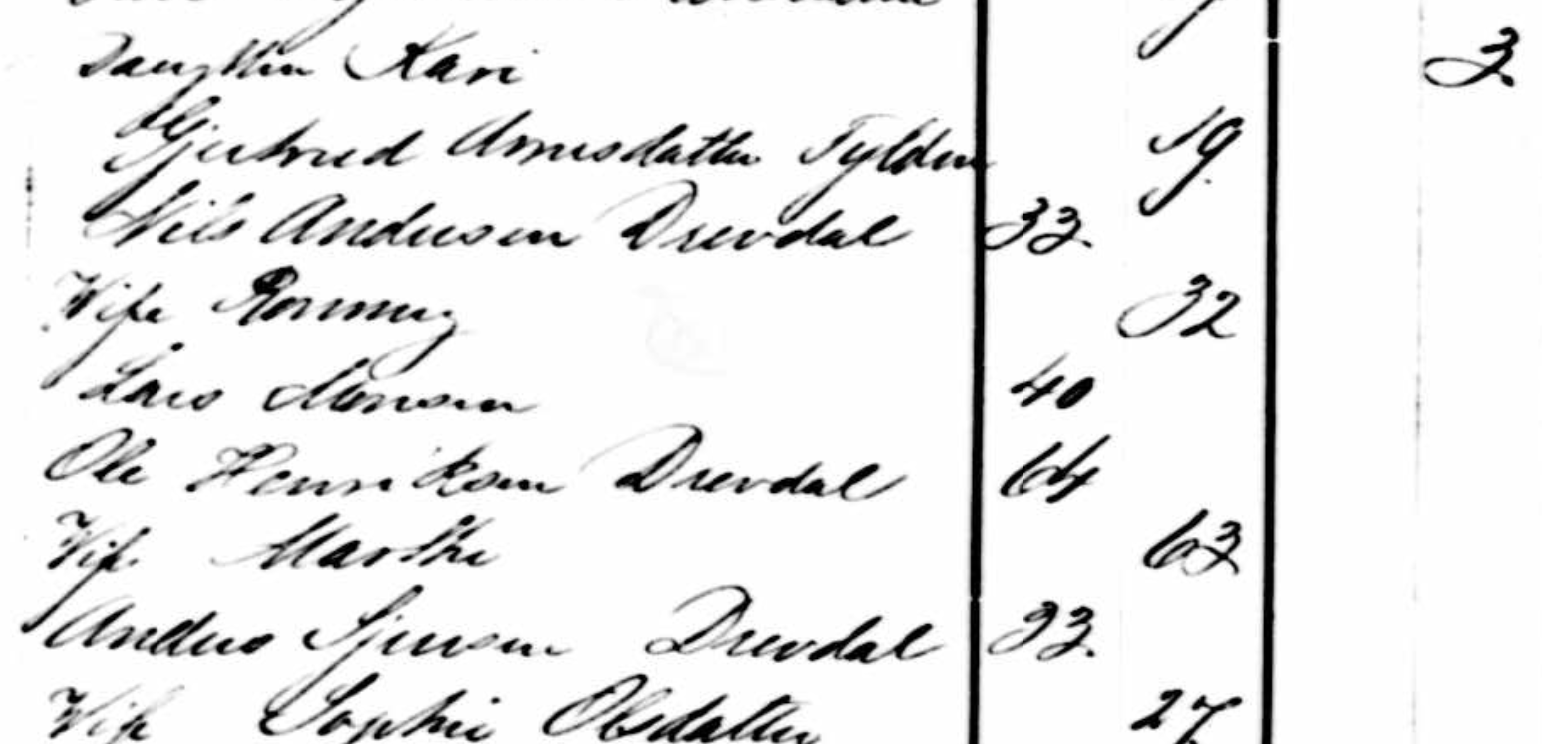 Daughter Kari 3.
Gjertrud Arnesdatter Tylden 19.
Nils Andersen Drevdal 33.
Wife Ronnug 32
Lars Monsen 40
Ole Henriksen Drevdal 64
Wife Marthe 63
Anders Sjursen Drevdal 33.
Wife Sophie Olsdatter 27